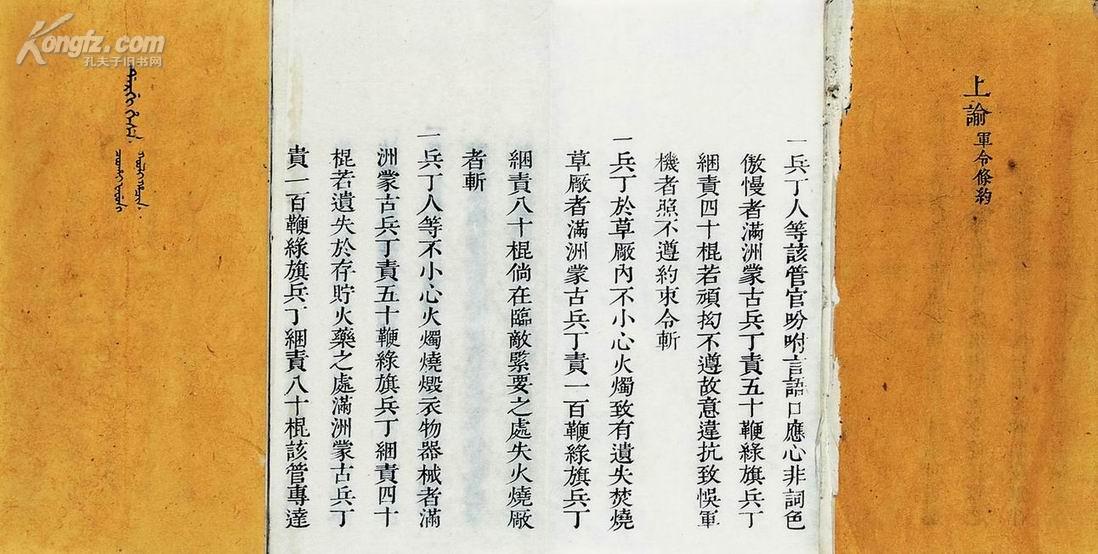 上諭 軍令條約
一兵丁人等該管官吩咐言語口應心非詞色
傲慢者滿洲蒙古兵丁責五十鞭綠旗兵丁
綑責四十棍若頑拗不遵故意違抗致悞軍
機者照不遵約束令斬
一兵丁於草厰內不小心火燭致有遺失焚燒
草厰者滿洲蒙古兵丁責一百鞭綠旗兵丁
綑責八十棍倘在臨敵緊要之處失火燒厰
者斬
一兵丁人等不小心火燭燒燬衣物器械者滿
洲蒙古兵丁責五十鞭綠旗兵丁綑責四十
棍若遺失於存貯火藥之處滿洲蒙古兵丁
責一百鞭綠旗兵丁綑責八十棍該管專達
Kongfz.com
孔夫子旧书网